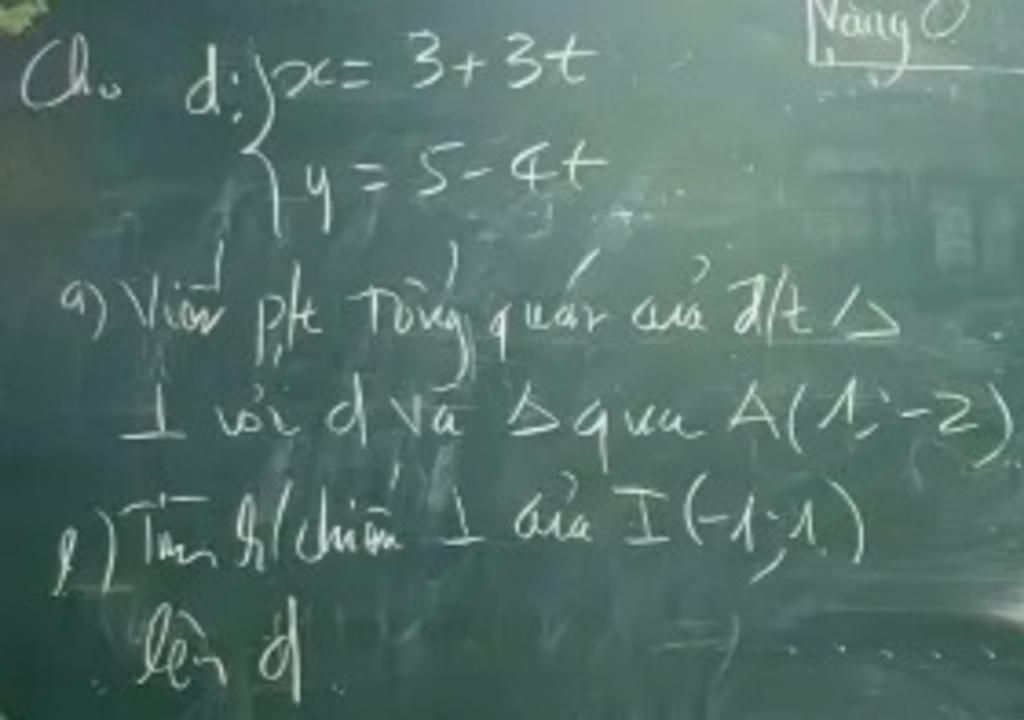 Nàng O
Cho d: { x = 3 + 3t
y = 5 - 4t
a) Viết pt Tổng quát của đ/t Δ
⊥ với d và Δ qua A(1; -2)
b) Tìm h/chiếu ⊥ của I(-1; 1)
lên d